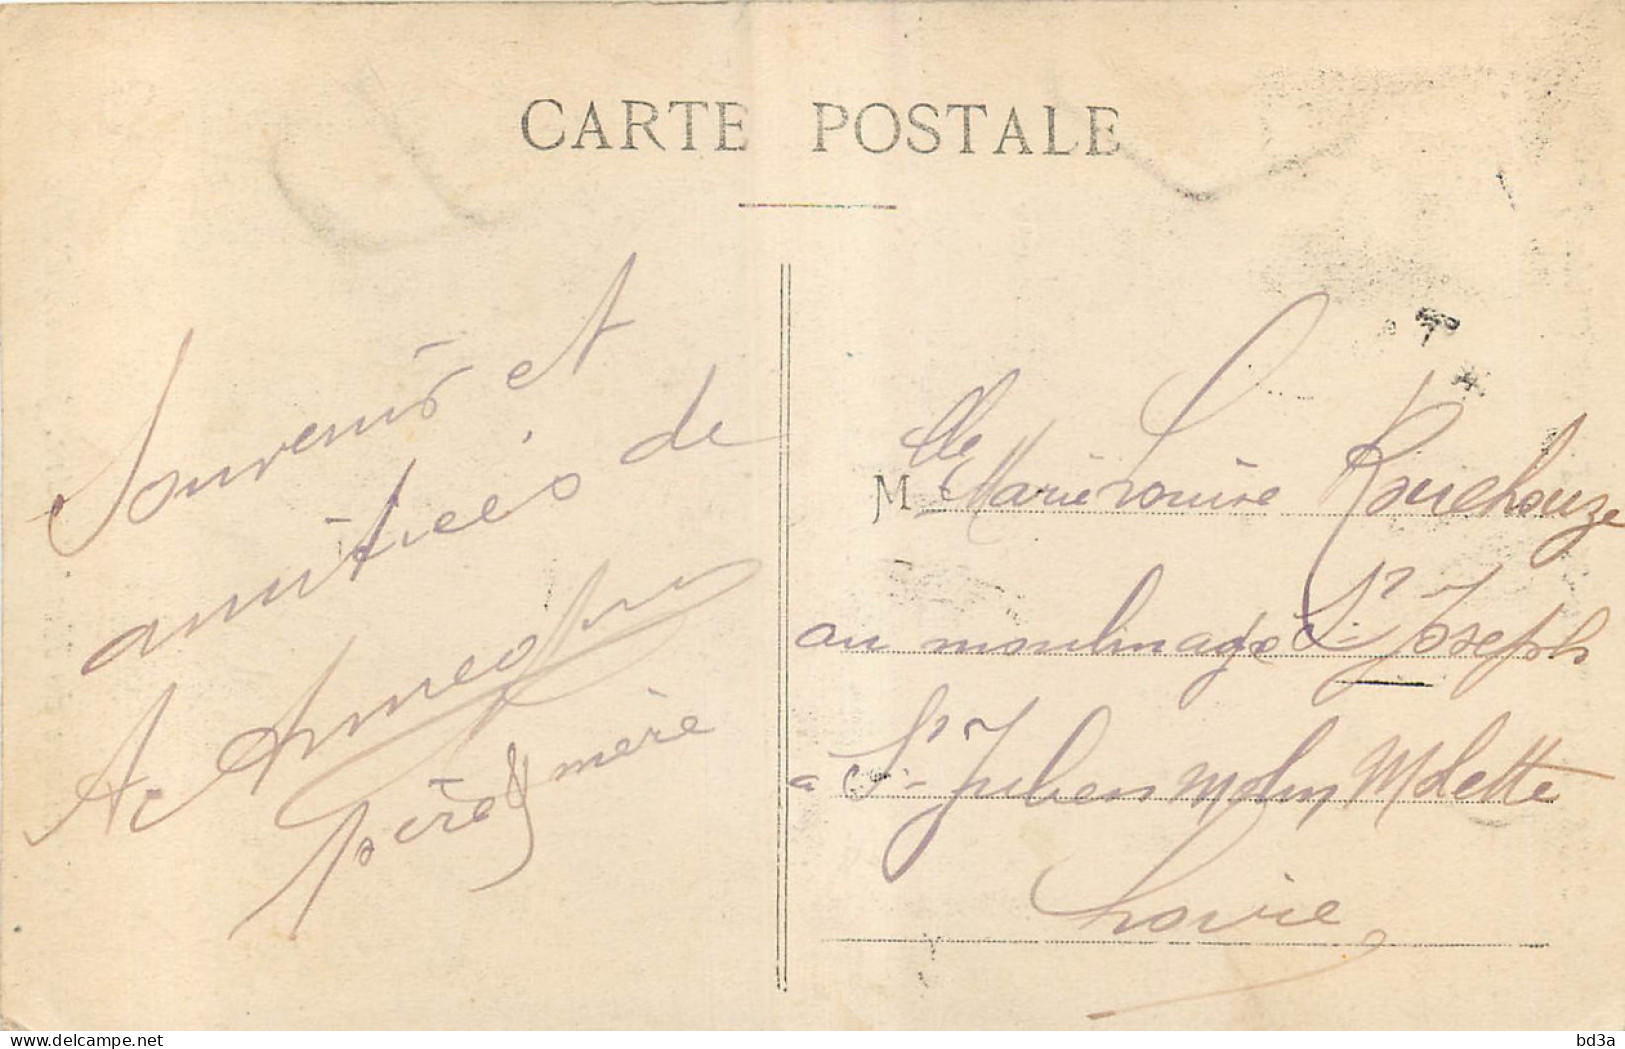 CARTE POSTALE
Souvenir et
amitiées de
A.
père & mère
Mlle Marie Louise Rouchouze
au moulinage St Joseph
a St Julien Molin Molette
Loire
delcampe.net
bd3a